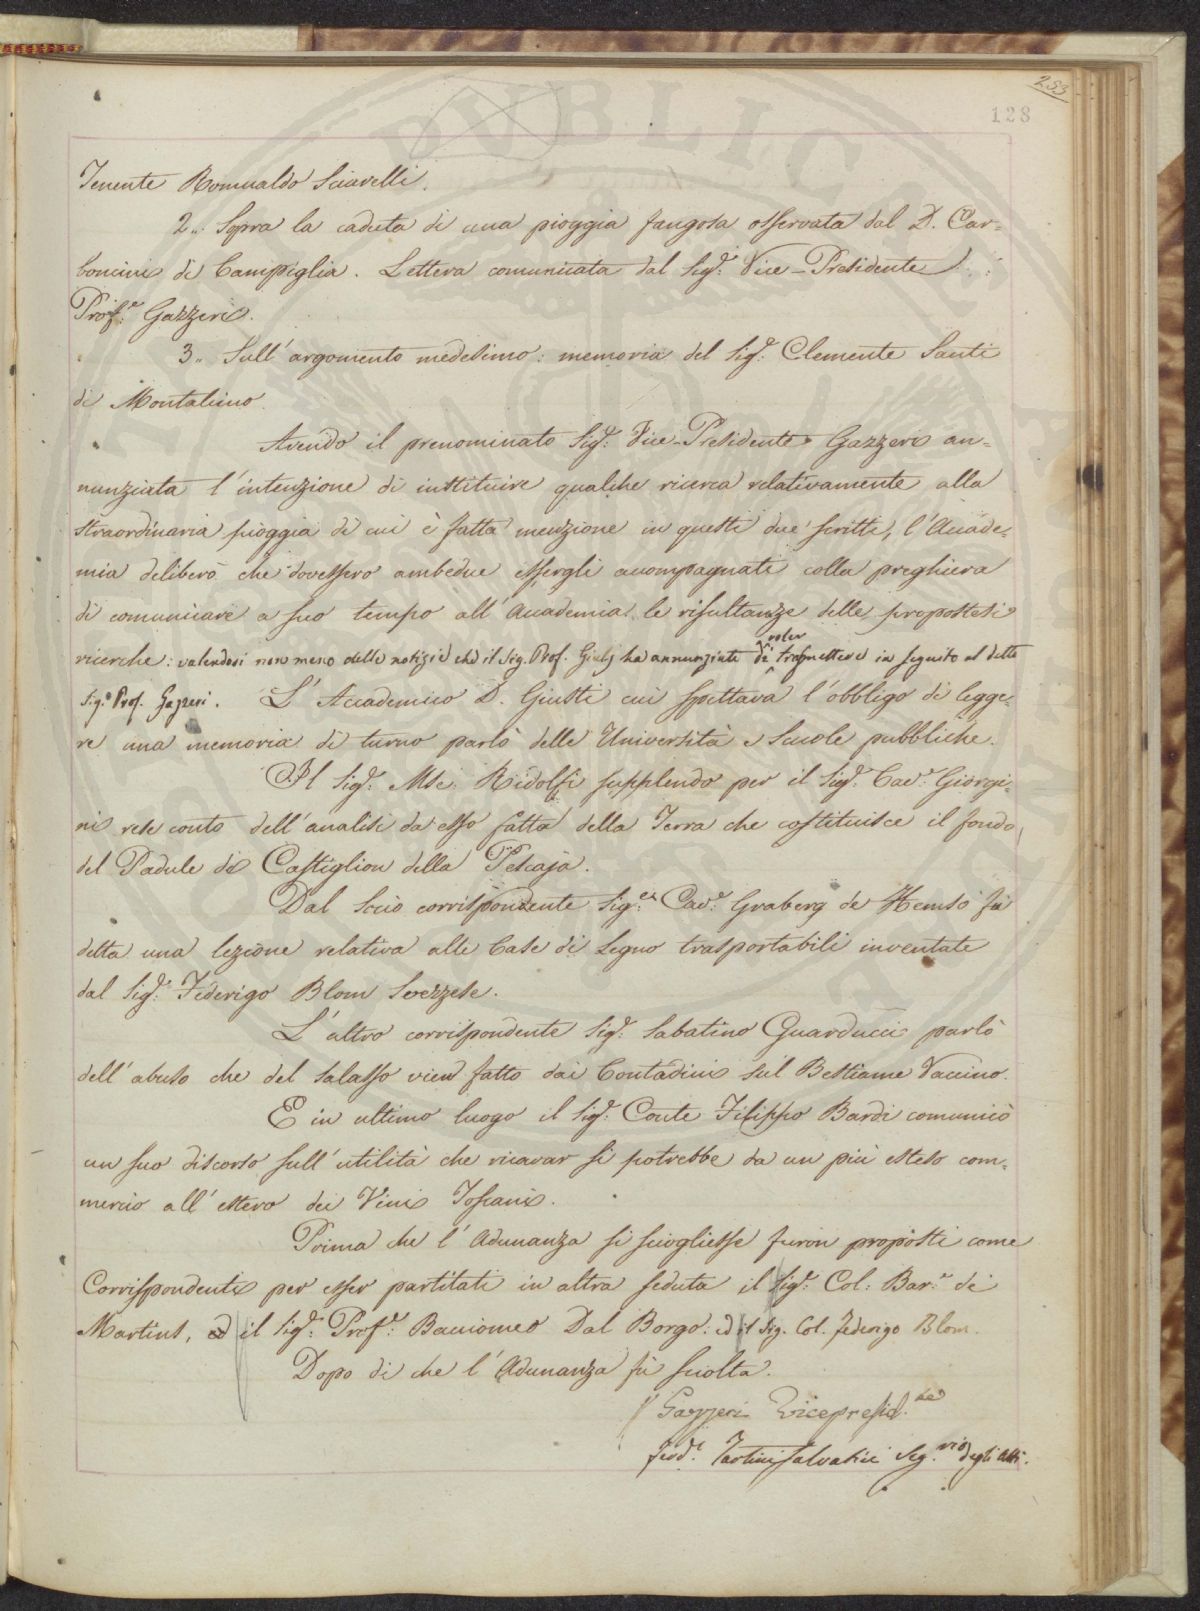 283
128
Tenente Romualdo Sciarelli.
2.. Sopra la caduta di una pioggia fangosa osservata dal D. Car=
boncini di Campiglia. Lettera comunicata dal Sig.r Vice-Presidente
Prof.e Gazzeri.
3.. Sull'argomento medesimo: memoria del Sig.r Clemente Santi
di Montalcino.
Avendo il prenominato Sig.r Vice-Presidente Gazzeri an=
nunziata l'intenzione di instituire qualche ricerca relativamente alla
straordinaria pioggia di cui è fatta menzione in questi due scritti, l'Accade=
mia deliberò che dovessero ambedue essergli accompagnati colla preghiera
di comunicare a suo tempo all'Accademia le risultanze delle propostesi
ricerche: valendosi non meno delle notizie che il Sig. Prof. Giulj ha annunziate di voler trasmettere in seguito al detto
Sig.e Prof. Gazzeri. L'Accademico D. Giusti cui spettava l'obbligo di legge=
re una memoria di turno parlò delle Università e Scuole pubbliche.
Il Sig.r Mse. Ridolfi supplendo per il Sig.r Cav.e Giorgi=
ni rese conto dell'analisi da esso fatta della Terra che costituisce il fondo
del Padule di Castiglion della Pescaja.
Dal Socio corrispondente Sig.e Cav.e Graberg de Hemsò fù
detta una lezione relativa alle Case di Legno trasportabili inventate
dal Sig.r Federigo Blom Svezzese.
L'altro corrispondente Sig.r Sabatino Guarducci parlò
dell'abuso che del salasso vien fatto dai Contadini sul Bestiame Vaccino.
E in ultimo luogo il Sig.r Conte Filippo Bardi comunicò
un suo discorso sull'utilità che ricavar si potrebbe da un più esteso com=
mercio all'estero dei Vini Toscani.
Prima che l'Adunanza si sciogliesse furon propòsti come
Corrispondenti per esser partitati in altra seduta il Sig.r Col. Bar.e de
Martins, ed il Sig.r Prof.e Bacciomeo Dal Borgo. ed il Sig. Col. Federigo Blom.
Dopo di che l'Adunanza fù sciolta.
Gazzeri Vicepresid.te
Ferd.o Tartini Salvatici Seg.rio degli Atti.